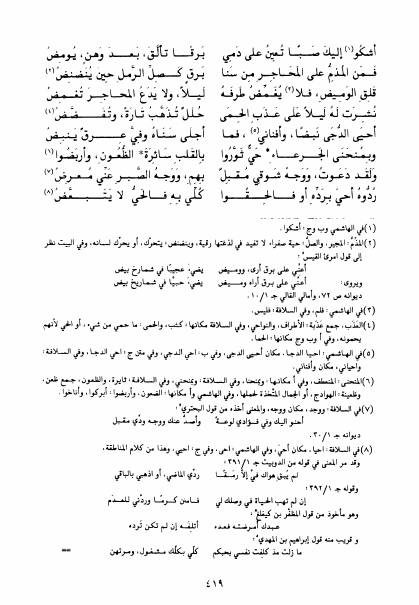 أشكو(١) إليك صبًّا تُعين على دمي برقا تألّق، بعد وهن، يومض
فمن المذمّ على المحاجر من سنا برق كصلّ الرمل حين ينضنض(٢)
قلق الوميض، فلا(٣) يغمّض طرفه ليلاً، ولا يدع المحاجر تغمض
نشرت له ليلاً على عذب الحمى حلل تذهّب تارة، وتفضّض(٤)
أحيى الدجى نبضا، وأفناني(٥)، فما أجلى سناه وفيّ عرق ينبض
وبمنحنى الجرعاء حيّ ثوّروا بالقلب سائرة الظعون، وأربضوا(٦)
ولقد دعوت، ووجه شوقي مقبل بهم، ووجه الصبر عنّي معرض(٧)
ردّوه أحي بردّه أو فالحقوا كلّي به فالحيّ لا يتبعّض(٨)
(١) في الهاشمي وب وج: أشكوا.
(٢) المذمّ: المجير، والصل: حية صفراء لا تفيد في لدغتها رقية، وينضنض: يتحرك، أو يحرك لسانه، وفي البيت نظر
إلى قول امرئ القيس:
أعنّي على برق أرى، ووميض يضيء عجيبًا في شمارخ بيض
ويروى: أعنّي على برق أراه وميض يضيء حبيّا في شماريخ بيض
ديوانه ص ٧٢، وأمالي القالي جـ ١٠/١.
(٣) في الهاشمي: فلم، وفي السلافة: فليس.
(٤) العذب، جمع عذبة: الأطراف، والنواحي، وفي السلافة مكانها: كتب، والحمى: ما حمي من شيء، أو الحي لأنهم
يحمونه، وفي أ وب وج مكانها: الحما.
(٥) في الهاشمي: أحيا الدجا، مكان أحيى الدجى، وفي ب: احي الدجى، وفي متن ج: احي الدجا، وفي السلافة:
وأحياني، مكان وأفناني.
(٦) المنحنى: المنعطف، وفي أ مكانها: وبمنحنا، وفي السلافة: وبمنحني، وفي السلافة: ثايرة، والظعون، جمع ظعن.
وظعينة: الهوادج، أو الجمال المتّخذة لحملها، وفي الهاشمي وأ مكانها: الضعون، وأربضوا: أبركوا، وأناخوا.
(٧) في السلافة: ووجد، مكان ووجه، والمعنى أخذه من قول البحتري:
أحنو اليك وفي فؤادي لوعة وأصد عنك ووجه ودي مقبل
ديوانه جـ ٣٠/١.
(٨) في السلافة: احيا، مكان أحي، وفي الهاشمي: احى، وفي ج: احيي، وهذا من كلام المناطقة.
وقد مر المعنى في قوله من الدوبيت جـ ٣٩١/١:
لم يبق هواك فيّ إلا رمقا ردي الماضي، أو اذهبي بالباقي
وقوله جـ ٣٩٢/١:
إن لم تهب الحياة في وصلك لي فامنن كرما وردّني للعدم
وهو مأخوذ من قول المظفر بن كيغلغ:
عبدك أمرضته فعده أتلفه إن لم تكن ترده
و قريب منه قول إبراهيم بن المهدي:
ما زلت مذ كلفت نفسي بحبكم كلي بكلك مشغول، ومرتهن ==
٤١٩